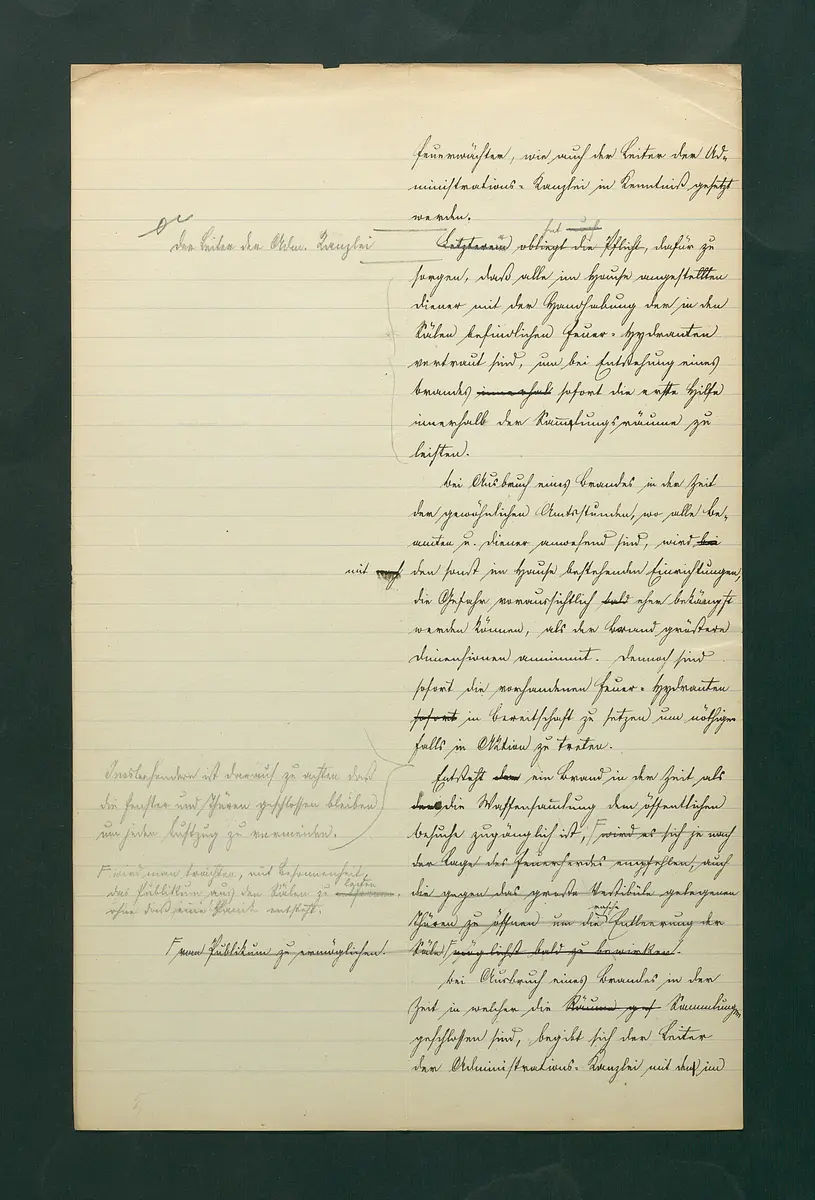 Feuerwächter, wie auch der Leiter der Ad-
ministrations-Kanzlei in Kenntniß gesetzt
werden.
Der Leiter der Adm. Kanzlei
hat
Letzterem obliegt die Pflicht, dafür zu
sorgen, daß alle im Hause angestellten
Diener mit der Handhabung der in den
Sälen befindlichen Feuer-Hydranten
vertraut sind, um bei Entstehung eines
Brandes innerhalb sofort die erste Hilfe
innerhalb der Sammlungsräume zu
leisten.
Bei Ausbruch eines Brandes in der Zeit
der gewöhnlichen Amtsstunden, wo alle Be-
amten u. Diener anwesend sind, wird bei
mit
den sonst im Hause bestehenden Einrichtungen,
die Gefahr voraussichtlich bald eher bekämpft
werden können, als der Brand größere
Dimensionen annimmt. Dennoch sind
sofort die vorhandenen Feuer-Hydranten
sofort in Bereitschaft zu setzen um nöthigen
falls in Aktion zu treten.
Insbesondere ist darauf zu achten daß
die Fenster und Thüren geschlossen bleiben
um jeden Luftzug zu vermeiden.
Entsteht ein Brand in der Zeit als
die Waffensammlung dem öffentlichen
Besuche zugänglich ist, wird es sich je nach
der Lage des Feuerherdes empfehlen, auch
die gegen das große Vestibüle gelegenen
Thüren zu öffnen um die rasche Entleerung der
Säle möglichst bald zu bewirken.
wird man trachten, mit Besonnenheit
das Publikum aus den Sälen zu leiten
ohne daß eine Panik entsteht.
Publikum zu ermöglichen.
Bei Ausbruch eines Brandes in der
Zeit in welcher die Räume Sammlungen
geschlossen sind, begibt sich der Leiter
der Administrations-Kanzlei mit den im